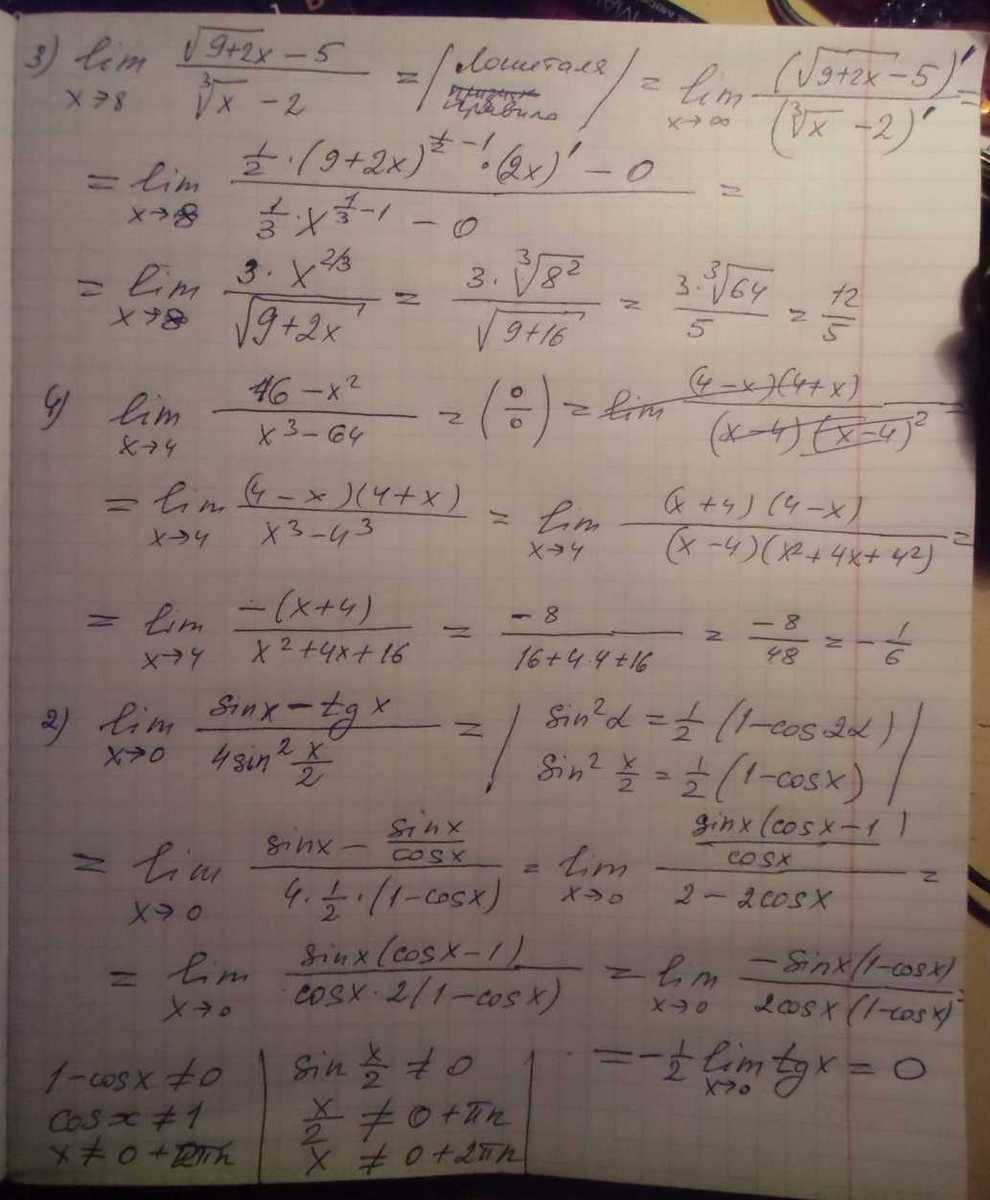 3) lim x→8 (√(9+2x) − 5)/(∛x − 2) = | Лопиталя правило | = lim x→∞ (√(9+2x) − 5)'/(∛x − 2)' =
= lim x→8 (1/2 · (9+2x)^(1/2 − 1) · (2x)' − 0)/(1/3 · x^(1/3 − 1) − 0) =
= lim x→8 (3 · x^(2/3))/√(9+2x) = (3 · ∛(8²))/√(9+16) = (3 · ∛64)/5 = 12/5
4) lim x→4 (16 − x²)/(x³ − 64) = (0/0) = lim ((4−x)(4+x))/((x−4)(x−4)²) =
= lim x→4 ((4−x)(4+x))/(x³ − 4³) = lim x→4 ((x+4)(4−x))/((x−4)(x²+4x+4²)) =
= lim x→4 (−(x+4))/(x²+4x+16) = −8/(16+4·4+16) = −8/48 = −1/6
2) lim x→0 (sinx − tgx)/(4sin² x/2) = | sin²α = 1/2 (1−cos2α)
sin² x/2 = 1/2 (1−cosx) |
= lim x→0 (sinx − sinx/cosx)/(4 · 1/2 · (1−cosx)) = lim x→0 (sinx(cosx−1)/cosx)/(2 − 2cosx) =
= lim x→0 (sinx(cosx−1))/(cosx · 2(1−cosx)) = lim x→0 (−sinx(1−cosx))/(2cosx(1−cosx)) =
= −1/2 lim x→0 tgx = 0
1−cosx ≠ 0 | sin x/2 ≠ 0 |
cosx ≠ 1 | x/2 ≠ 0 + πn |
x ≠ 0 + 2πn | x ≠ 0 + 2πn |